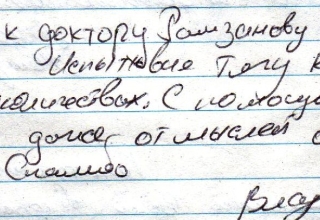 к доктору Рамзанову
Испытывая тягу к
количествах. С помощью
даже от мыслей о
Спасибо
Вла